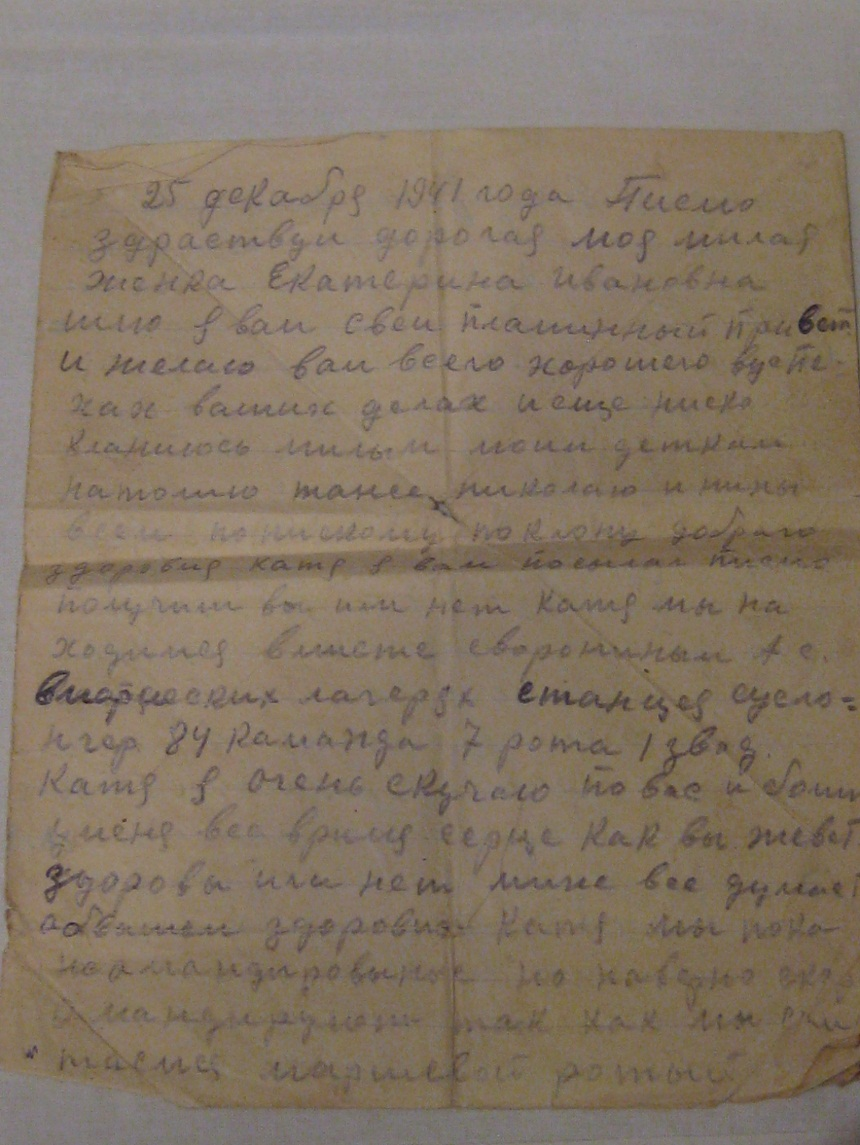 25 декабря 1941 года Писмо
здраствуи дорогая моя милая
женка Екатерина Ивановна
шлю я вам свеи пламинный привет
и желаю вам всего хорошего вуспе-
хах ваших делах и еще ниско
кланиюсь милым моим деткам
натолию танее николаю и нины
всем по нискому поклону доброго
здоровия катя я вам посылал писмо
получили вы или нет катя мы на
ходимся вместе сворониным А с.
лагерях станцея сусло=
нгер 84 каманда 7 рота 1 звод
Катя я очень скучаю по вас и болит
у меня все время серце как вы живет
здоровы или нет мине все думает
обвашем здоровие Катя мы пока
но наверно скор
так как мы счи
таемся маршевой ротый